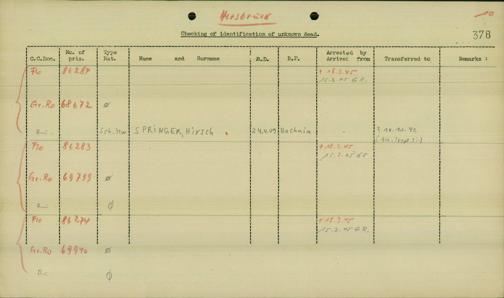 Hersbruck
Checking of identification of unknown dead.
378
C.C.Doc. No. of pris. Type Nat. Name and Surname B.D. B.P. Arrested by Arrived from Transferred to Remarks :
Flo 86284 + 18.3.45
15.3.45 GR.
Gr.Ro 68672 ø
Sch. SPRINGER, Hirsch 24.4.09 Bochnia
Flo 86283 + 18.3.45
15.3.45 GR
Gr.Ro 69799 ø
ø
Flo 86274 + 18.3.45
15.3.45 GR.
Gr.Ro 69990 ø
ø